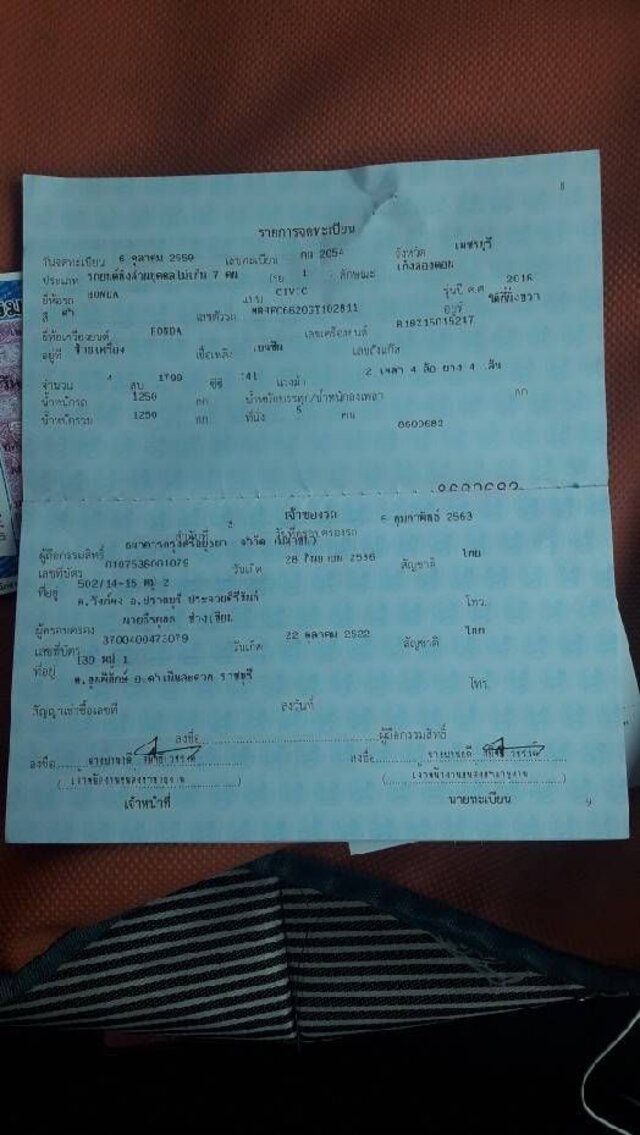 8
รายการจดทะเบียน
วันจดทะเบียน 6 ตุลาคม 2559 เลขทะเบียน กฉ 2054 จังหวัด เพชรบุรี
ประเภท รถยนต์นั่งส่วนบุคคลไม่เกิน 7 คน รย. 1 ลักษณะ เก๋งสองตอน
ยี่ห้อรถ HONDA แบบ CIVIC รุ่นปี ค.ศ. 2016
สี ดำ เลขตัวรถ อยู่ที่
ยี่ห้อเครื่องยนต์ HONDA เลขเครื่องยนต์
อยู่ที่ ข้างเครื่อง เชื้อเพลิง เบนซิน เลขถังแก๊ส
จำนวน 4 สูบ 1799 ซีซี 141 แรงม้า 2 เพลา 4 ล้อ ยาง 4 เส้น
น้ำหนักรถ 1250 กก. น้ำหนักบรรทุก/น้ำหนักลงเพลา กก.
น้ำหนักรวม 1250 กก. ที่นั่ง 5 คน
8600682
8600682
เจ้าของรถ
ลำดับที่ 2 วันที่ครอบครองรถ 6 กุมภาพันธ์ 2563
ผู้ถือกรรมสิทธิ์ ธนาคารกรุงศรีอยุธยา จำกัด (มหาชน)
เลขที่บัตร 0107536001079 วันเกิด 28 กันยายน 2536 สัญชาติ ไทย
ที่อยู่ 502/14-15 หมู่ 2
ต.วังก์พง อ.ปราณบุรี ประจวบคีรีขันธ์ โทร.
ผู้ครอบครอง
เลขที่บัตร วันเกิด 22 ตุลาคม 2522 สัญชาติ ไทย
ที่อยู่ 130 หมู่ 1
ต.ขุนพิทักษ์ อ.ดำเนินสะดวก ราชบุรี โทร.
สัญญาเช่าซื้อเลขที่ ลงวันที่
ลงชื่อ ผู้ถือกรรมสิทธิ์
ลงชื่อ ลงชื่อ
(เจ้าพนักงานขนส่งชำนาญงาน) (เจ้าพนักงานขนส่งชำนาญงาน)
เจ้าหน้าที่ นายทะเบียน
9